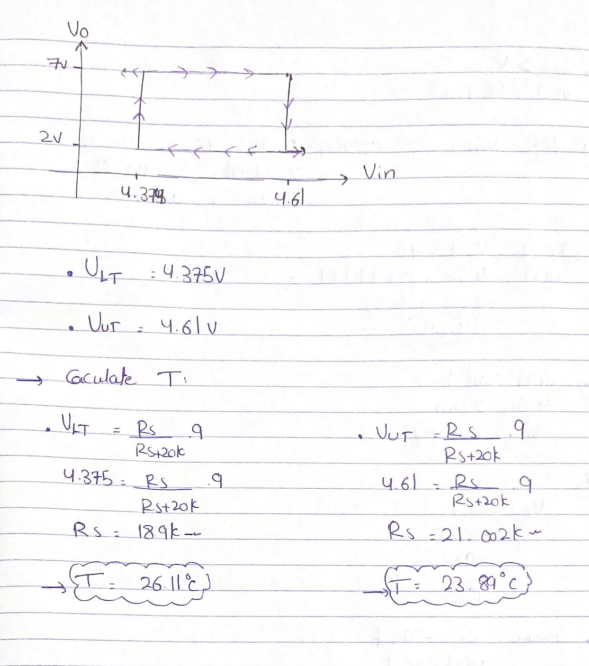 Vo
7V
2V
Vin
4.375
4.61
• VLT = 4.375V
• VUT = 4.61V
→ Caculate T:
• VLT = Rs / Rs+20k .9
4.375 = Rs / Rs+20k .9
Rs = 18.9k
→ T = 26.11°C
• VUT = Rs / Rs+20k .9
4.61 = Rs / Rs+20k .9
Rs = 21.002k
→ T = 23.89°C